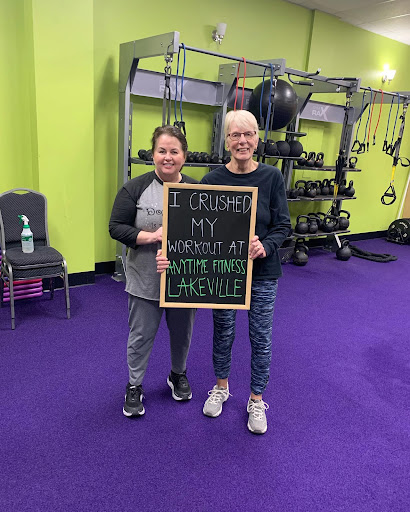 I CRUSHED
MY
WORKOUT AT
ANYTIME FITNESS
LAKEVILLE